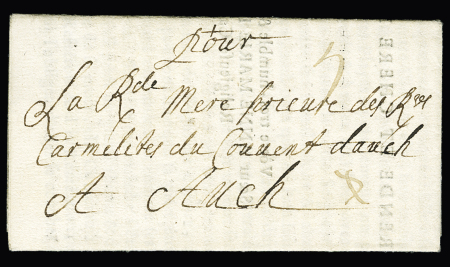 pour
La Rde Mere prieure des Rses
Carmelites du Couvent dauch
A Auch